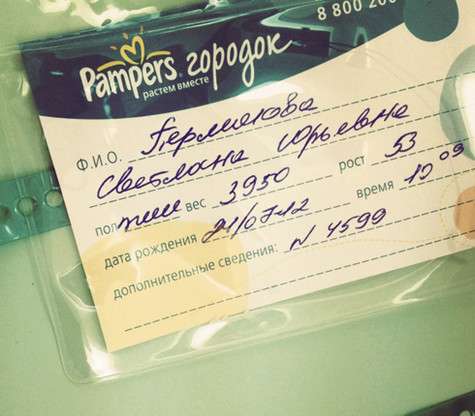 8 800 200
Pampers городок
растем вместе
Ф.И.О. Пермикова
Светлана Юрьевна
пол жен вес 3950 рост 53
дата рождения 21/07.12 время 10 09
дополнительные сведения: N 4599